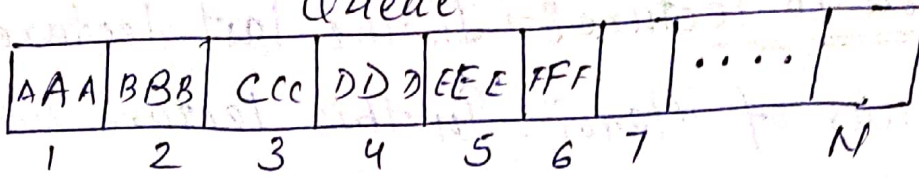 Queue
AAA BBB CCC DDD EEE FFF ....
1 2 3 4 5 6 7 N